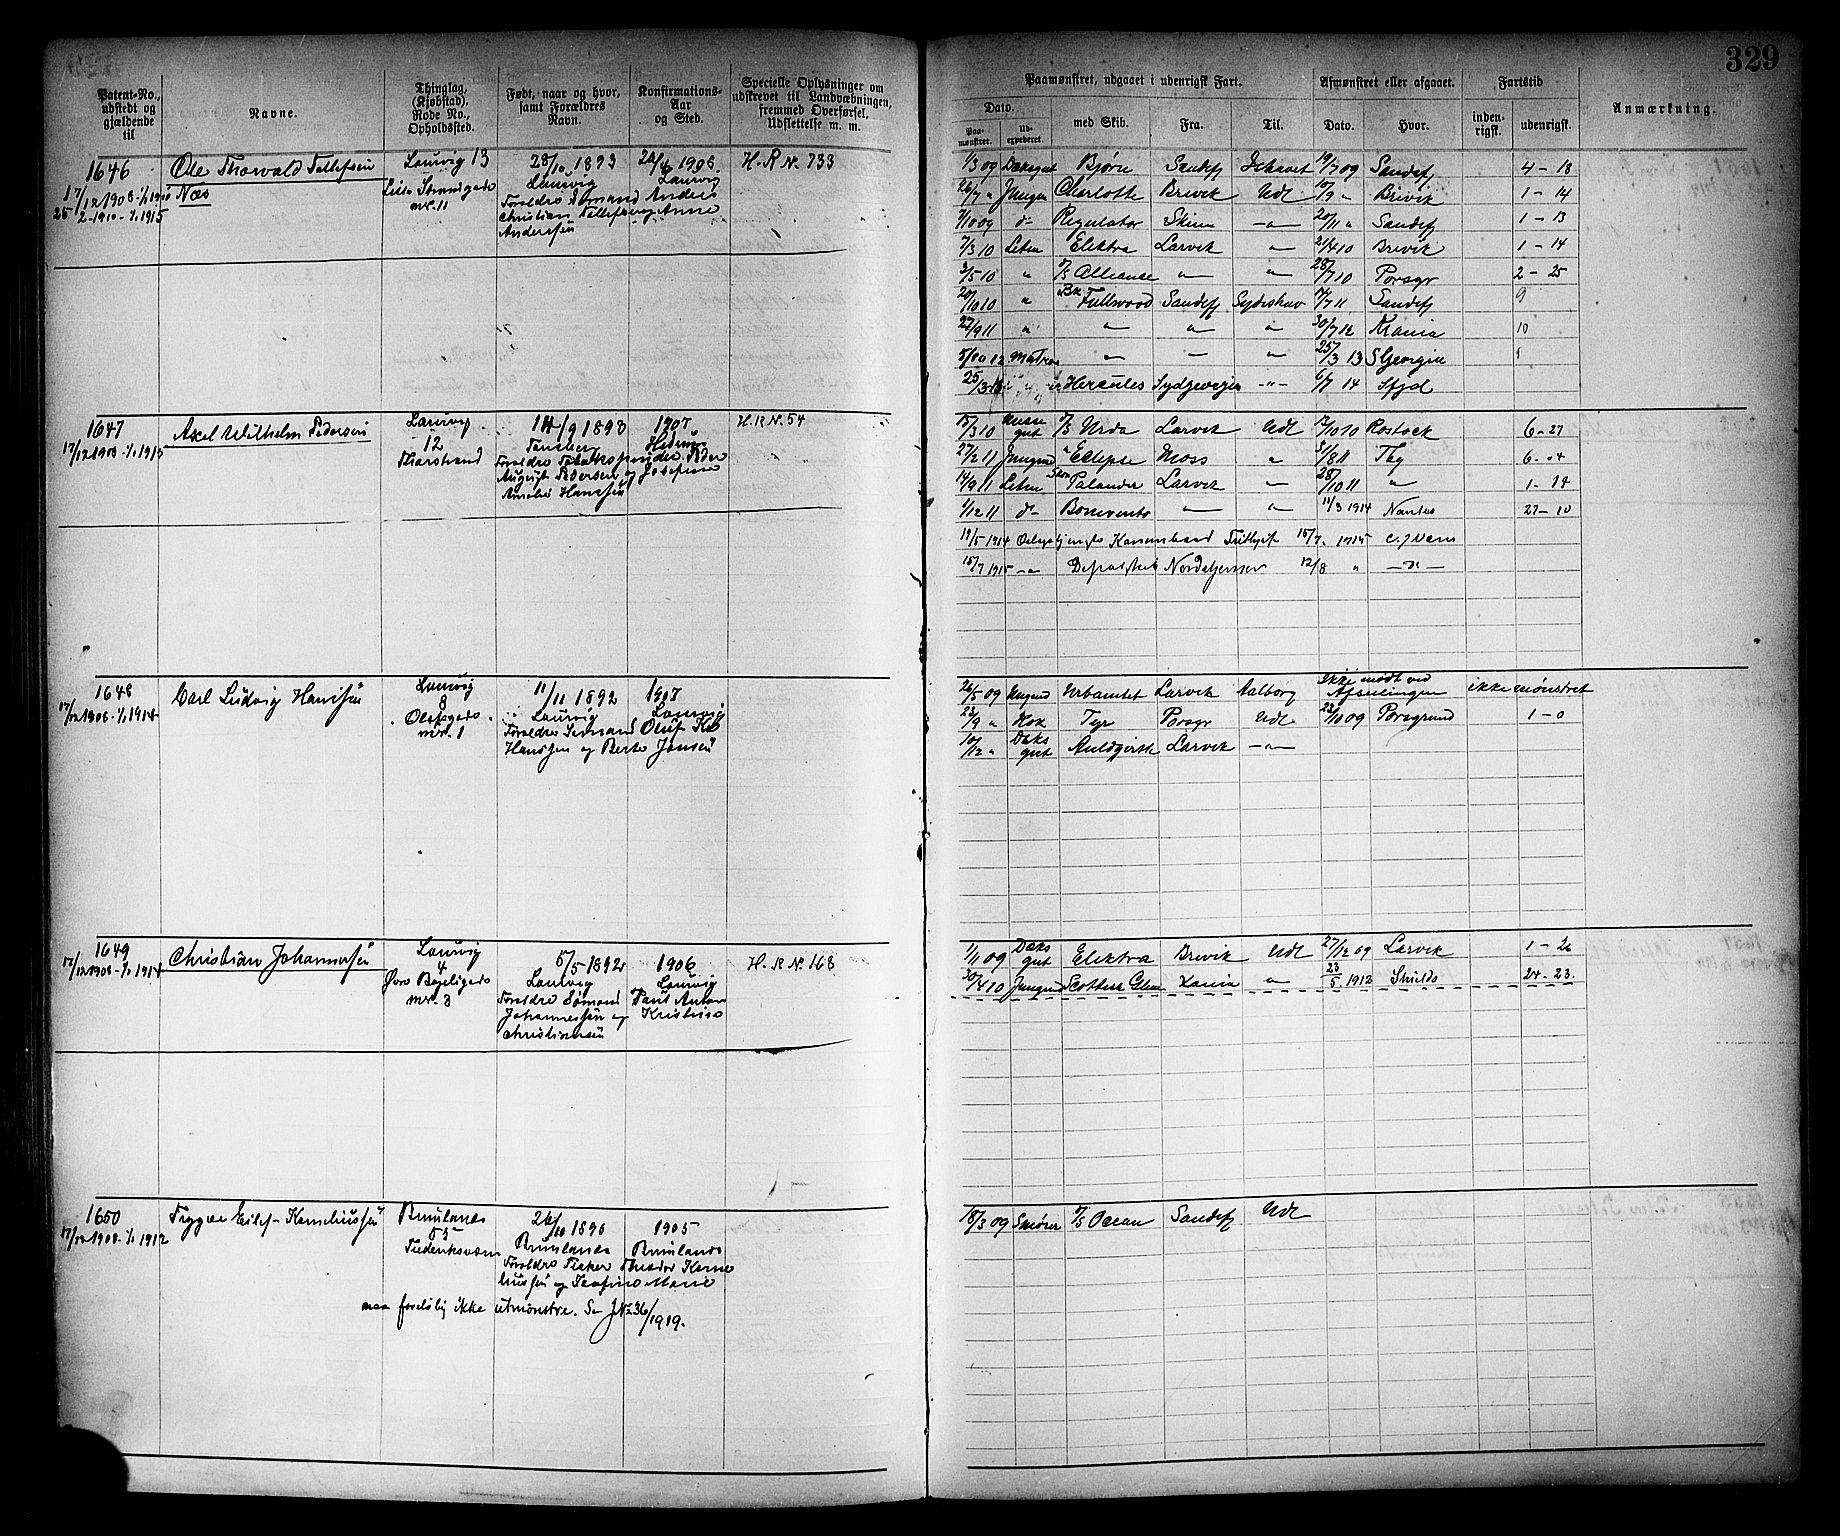 329
Patent-No., udstedt og gjældende til
Navne.
Thinglag, (Kjøbstad), Rode No., Opholdssted.
Født, naar og hvor, samt Forældres Navn.
Konfirmations-Aar og Sted.
Specielle Oplysninger om udskrevet til Landværningen, fremmed Overførsel, Udslettelse m. m.
Paamønstret, udgaaet i udenrigsk Fart.
Afmønstret eller afgaaet.
Fartstid
Anmærkning.
Dato.
Paa-mønstret.
med Skib.
Fra.
Til.
Dato.
Hvor.
inden-rigsk.
udenrigsk.
1646
17/12 1908 - 1/1 1910
25/2 - 1910 - 1/1 1915
Ole Thorvald Tellefsen
Næs
Laurvig 13
11
28/10 1893
Laurvig
Forældre Sømand Anders
Christian Tellefsen og Anne
Andersen
1908
Laurvig
H. R. No. 733
1/3 09 Dæksgut Bjørn Sandefj Ishavet 19/7 09 Sandefj 4 - 18
26/7 " Jungm Charlotte Brevik Udl 10/9 " Brevik 1 - 14
7/10 09 do Regulator Skien -"- 20/11 " Sandefj 1 - 13
7/3 10 Letm Elektra Larvik " 21/4 10 Brevik 1 - 14
3/5 10 " D/S Alliance " " 28/7 10 Porsgr 2 - 25
20/10 10 " Bk Fullwood Sandefj Sydishav 14/7 11 Sandefj 9
22/9 11 " " " " 30/7 12 Krania 10
5/10 12 Matros " - " 25/3 13 S Georgia
25/3 13 Hercules -"- 6/7 14 Sfjd
1647
17/12 1908 - 1/1 1915
Axel Wilhelm Pedersen
Laurvig
12
Thorstrand
14/9 1893
Forældre Peder
August Pedersen og Josefine
Amalie Hansen
1907
Hedrum
H. R. No. 54
15/3 10 D/S Urda Larvik Udl 12/10 10 Rostock 6 - 27
27/2 11 Jungmd " Eclipse Moss " 5/8 11 Tbg 6 - 4
14/9 11 Letm Palander Larvik " 28/10 11 " 1 - 14
1/12 11 do Bonevento " " 11/3 1914 Nantes 27 - 10
19/5 1914 Kanonbaad Fridtjof 15/7 1915
15/7 1915 -"- 12/8 " -"-
1648
17/12 1908 - 1/1 1914
Carl Ludvig Hansen
Laurvig
8
Olafsgade
nr. 1
11/11 1892
Laurvig
Forældre Sømand Oluf
Hansen og Berte Jensen
1907
Laurvig
26/5 09 Jungmd Urbanitet Larvik Aalborg Ikke mødt ved Afseilingen ikke mønstret
22/9 " Kok Tyr Porsgr Udl 23/10 09 Porsgrund 1 - 0
10/12 " Dæksgut Auldgirth Larvik -"-
1649
17/12 1908 - 1/1 1914
Christian Johannesen
Laurvig
4
Øvre Bøkeligade
nr. 3
5/5 1892
Laurvig
Forældre Sømand Paul Anton
Johannessen og Kristine
Christiansen
1906
Laurvig
H. R. No. 168
1/11 09 Dæksgut Elektra Brevik Udl 27/12 09 Larvik 1 - 26
30/4 10 Jungmd Scottish Glen Xania " 23/5 1913 Shields 24 - 23
1650
17/12 1908 - 1/1 1912
Trygve Eilef Korneliussen
Brunlanes
55
Frederiksværn
26/10 1890
Brunlanes
Forældre Fisker Theodor Korne
liussen og Serafine Marie
1905
Brunlanes
maa foreløbig ikke utmønstre. Se J.No 36/1919.
18/3 09 Smører D/S Ocean Sandefj Udl